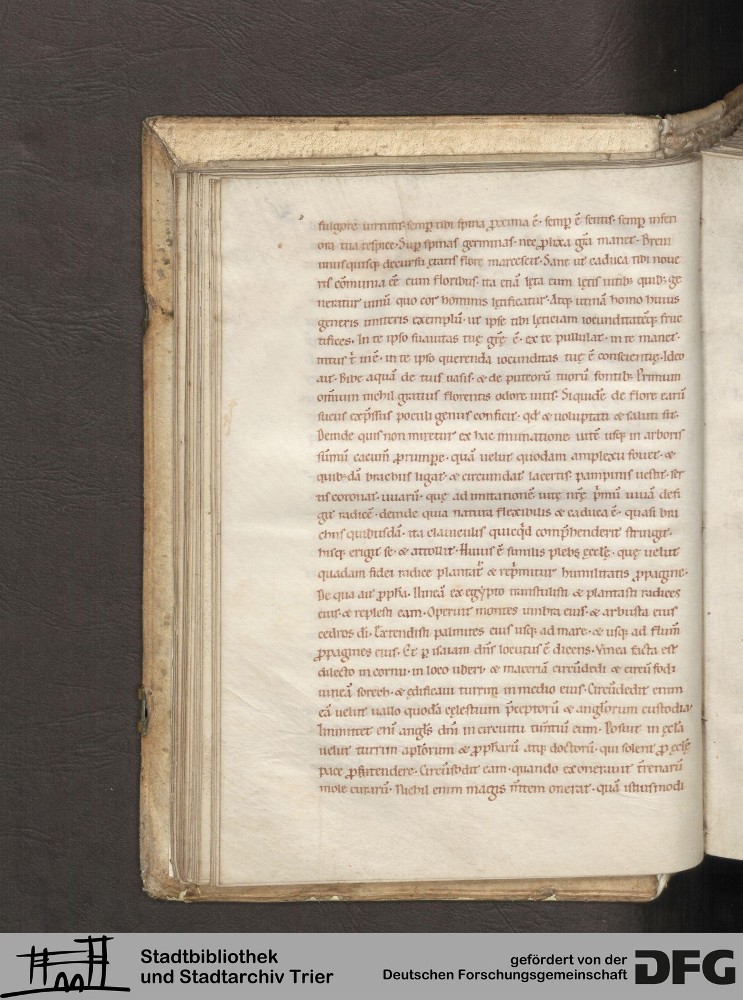 fulgore uirtutis· semp̄ tibi spina ꝓxima ē· semp̄ ē sentis· semp̄ inferi
ora tua respice· Sup̄ spinas germinas· nec ꝓlixa gr̄a manet· Breui
unusquisq; decursu ętatis flore marcescit· Sane ut caduca tibi noue
ris cōmunia eē cum floribus· ita etiā lęta cum lętis uitib; quib; ge
neratur uinū quo cor hominis lętificatur· Atq; utinā homo huius
generis imiteris exemplū· ut ipse tibi lęticiam iocunditatēq; fruc
tifices· In te ipso suauitas tuę grę̄ ē· ex te pullulat· in te manet·
intus t̄ inē· in te ipso querenda iocunditas tuę ē conscientię· Ideo
ait· Bibe aquā de tuis uasis· & de puteorū tuorū fontib; Primum
omīum nichil gratius florentis odore uitis· Siquidē de flore earū
sucus exp̄ssus poculi genus conficit· qđ & uoluptati & saluti sit·
Deinde quis non miretur ex hac imitatione uitē usq; in arboris
sūmū cacum̄ ꝓrumpe· quā uelut quodam amplexu fouet· &
quib;dā brachiis ligat· & circumdat lacertis· pampinis uestit· ser
tis coronat· uuarū· quę ad imitationē uitę nr̄ę p̄mū uiuā defi
git radicē· deinde quia natura flexibilis & caduca ē· quasi bra
chiis quibusdā· ita clauiculis quicq̄d comp̄henderit stringit·
hisq; erigit se· & attollit· Huius ē similis plebs ęcclę̄· quę uelut
quadam fidei radice plantat̄ & rep̄mitur humilitatis ꝓpagine·
De qua ait ꝓph̄a· Uineā ex egypto transtulisti & plantasti radices
eius· & replesti eam· Operuit montes umbra eius· & arbusta eius
cedros di· Extendisti palmites eius usq; ad mare· & usq; ad flum̄
ꝓpagines eius· Et p̄ isaiam dn̄s locutus ē dicens· Vinea facta est
dilecto in cornu· in loco uberi· & maceriā circūdedi & circū fodi
uineā sorech· & ędificaui turrim in medio eius· Circūdedit enim
eā uelut uallo quodā cęlestium p̄ceptorū & angl̄orum custodia·
Inmittet enī angl̄s dn̄i in circuitu tim̄tiū eum· Posuit in ęccl̄a
uelut turrim apl̄orum & ꝓph̄arū atq; doctorū· qui solent ꝓ ęccl̄ę
pace ꝓp̄tendere· Circūfodit eam· quando exonerauit t̄renarū
mole curarū· Nichil enim magis m̄tem onerat· quā istiusmodi
Stadtbibliothek
und Stadtarchiv Trier
gefördert von der
Deutschen Forschungsgemeinschaft
DFG